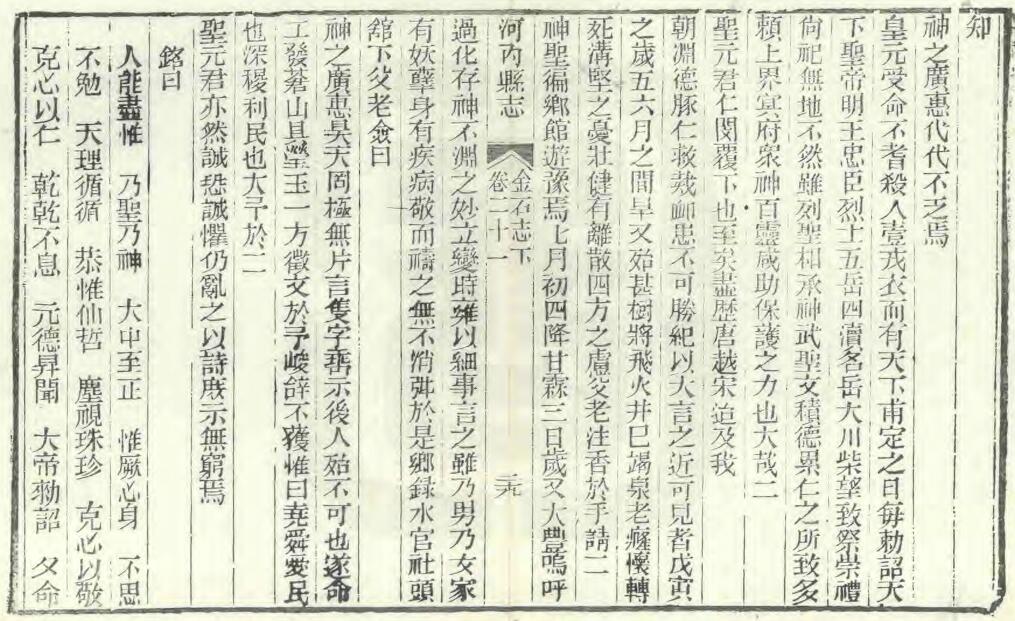 知
神之廣惠代代不乏焉
皇元受命不耆殺人壹戎衣而有天下甫定之日每勅詔天
下聖帝明王忠臣烈士五岳四瀆名岳大川柴望致祭崇禮
尚祀無地不然雖列聖相承神武聖文積德累仁之所致多
賴上界冥府衆神百靈葴助保護之力也大哉二
聖元君仁閔覆下也至矣盡歷唐越宋迨及我
朝淵德豚仁救烖卹患不可勝紀以大言之近可見者戊寅
之歲五六月之間旱又殆甚樹將飛火井巳竭泉老癃懷轉
死溝壑之憂壯健有離散四方之慮父老注香於手請二
神聖徧鄉館遊豫焉七月初四降甘霖三日歲又大豐嗚呼
河內縣志
金石志下
卷二十一
元
過化存神不淵之妙立變時雍以細事言之雖乃男乃女家
有妖孽身有疾病敬而禱之無不消弭於是鄉録水官社頭
舘下父老僉曰
神之廣惠昊天罔極無片言隻字垂示後人殆不可也遂命
工發蒼山具瑩玉一方徵文於予峻辭不獲惟曰堯舜愛民
也深稷利民也大予於二
聖元君亦然誠恐誠懼仍亂之以詩庶示無窮焉
銘曰
人能盡惟 乃聖乃神 大中至正 惟厥心身 不思
不勉 天理循循 恭惟仙哲 塵視珠珍 克必以敬
克必以仁 乾乾不息 元德昇聞 大帝勑詔 夂命